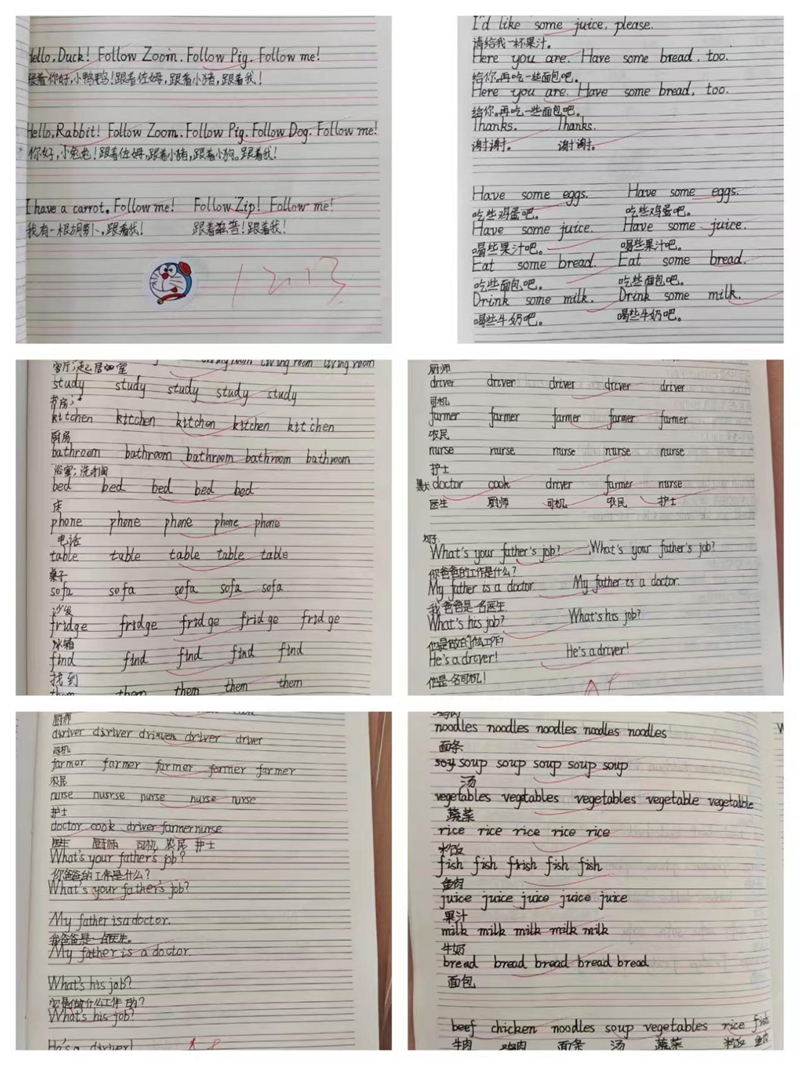 Hello, Duck! Follow Zoom. Follow Pig. Follow me!
跟着你好,小鸭鸭!跟着佐姆,跟着小猪,跟着我!
Hello, Rabbit! Follow Zoom. Follow Pig. Follow Dog. Follow me!
你好,小兔兔!跟着佐姆,跟着小猪,跟着小狗。跟着我!
I have a carrot. Follow me! Follow Zip! Follow me!
我有一根胡萝卜,跟着我! 跟着!跟着我!
I'd like some juice, please.
请给我一杯果汁。
Here you are. Have some bread, too.
给你。再吃一些面包吧。
Here you are. Have some bread, too.
给你。再吃一些面包吧。
Thanks. Thanks.
谢谢。 谢谢。
Have some eggs. Have some eggs.
吃些鸡蛋吧。 吃些鸡蛋吧。
Have some juice. Have some juice.
喝些果汁吧。 喝些果汁吧。
Eat some bread. Eat some bread.
吃些面包吧。 吃些面包吧。
Drink some milk. Drink some milk.
喝些牛奶吧。 喝些牛奶吧。
living room living room
客厅;起居室
study study study study study
书房;
kitchen kitchen kitchen kitchen kitchen
厨房
bathroom bathroom bathroom bathroom bathroom
浴室;洗手间
bed bed bed bed bed
床
phone phone phone phone phone
电话
table table table table table
桌子
sofa sofa sofa sofa sofa
沙发
fridge fridge fridge fridge fridge
冰箱
find find find find find
找到
them them them them them
厨师
driver driver driver driver driver
司机
farmer farmer farmer farmer farmer
农民
nurse nurse nurse nurse nurse
护士
doctor cook driver farmer nurse
医生 厨师 司机 农民 护士
句子:
What's your father's job? What's your father's job?
你爸爸的工作是什么?
My father is a doctor. My father is a doctor.
我爸爸是一名医生
What's his job? What's his job?
他是做什么工作?
He's a driver! He's a driver!
他是一名司机!
厨师
diriver diriver driver driver driver
司机
farmer farmer farmer farmer farmer
农民
nurse nusrse nurse nurse nurse
护士
doctor cook driver farmer nurse
医生 厨师 司机 农民 护士
What's your father's job?
你爸爸的工作是什么?
What's your father's job?
My father is a doctor.
我爸爸是一名医生。
My father is a doctor.
What's his job?
What's his job?
He's a diriver!
noodles noodles noodles noodles noodles
面条
soup soup soup soup soup
汤
vegetables vegtables vegetables vegetable vegetalble
蔬菜
rice rice rice rice rice
米饭
fish fish frish fish fish
鱼肉
juice juice juice juice juice
果汁
milk milk milk milk milk
牛奶
bread bread bread bread bread
面包
beef chicken noodles soup vegetables rice fish
牛肉 鸡肉 面条 汤 蔬菜 米饭 鱼肉